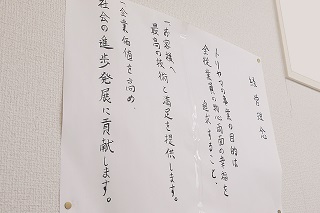 経営理念
トリカツの事業の目的は
全従業員の物心両面の幸福を
追求すること。
一お客様へ
最高の技術と満足を提供します。
一企業価値を高め、
社会の進歩発展に貢献します。